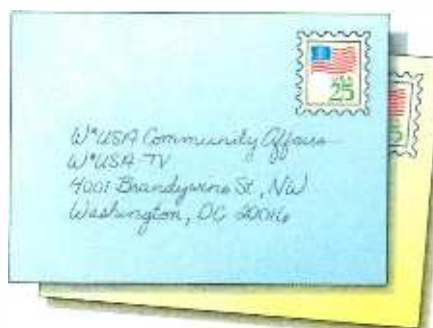 USA
25
W*USA Community Affairs
W*USA TV
4001 Brandywine St, NW
Washington, DC 20016
5